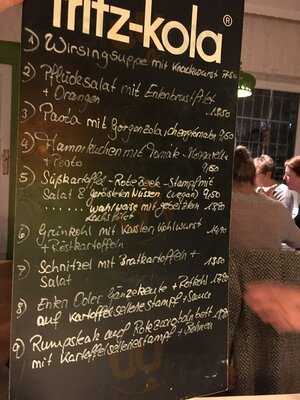 fritz-kola ®
1) Wirsingsuppe mit Knackwurst 7,50
2) Pflücksalat mit Entenbrustfilet
+ Orangen 13,50
3) Pasta mit Gorgonzola 9,50
4) Flammkuchen mit
+ Pesto 9,50
5) Süßkartoffel-Rote Beete-Stampf mit
Salat & gerösteten Nüssen (vegan) 9,50
...... wahlweise mit gebeizten
Lachsfilet 13,50
6) Grünkohl mit Kassler, Kohlwurst
+ Röstkartoffeln 14,90
7) Schnitzel mit Bratkartoffeln +
Salat
8) Enten Oder Gänsekeule + Rotkohl
auf Kartoffelselleriestampf + Sauce
9) Rumpsteak auf
mit Kartoffelselleriestampf + Bohnen